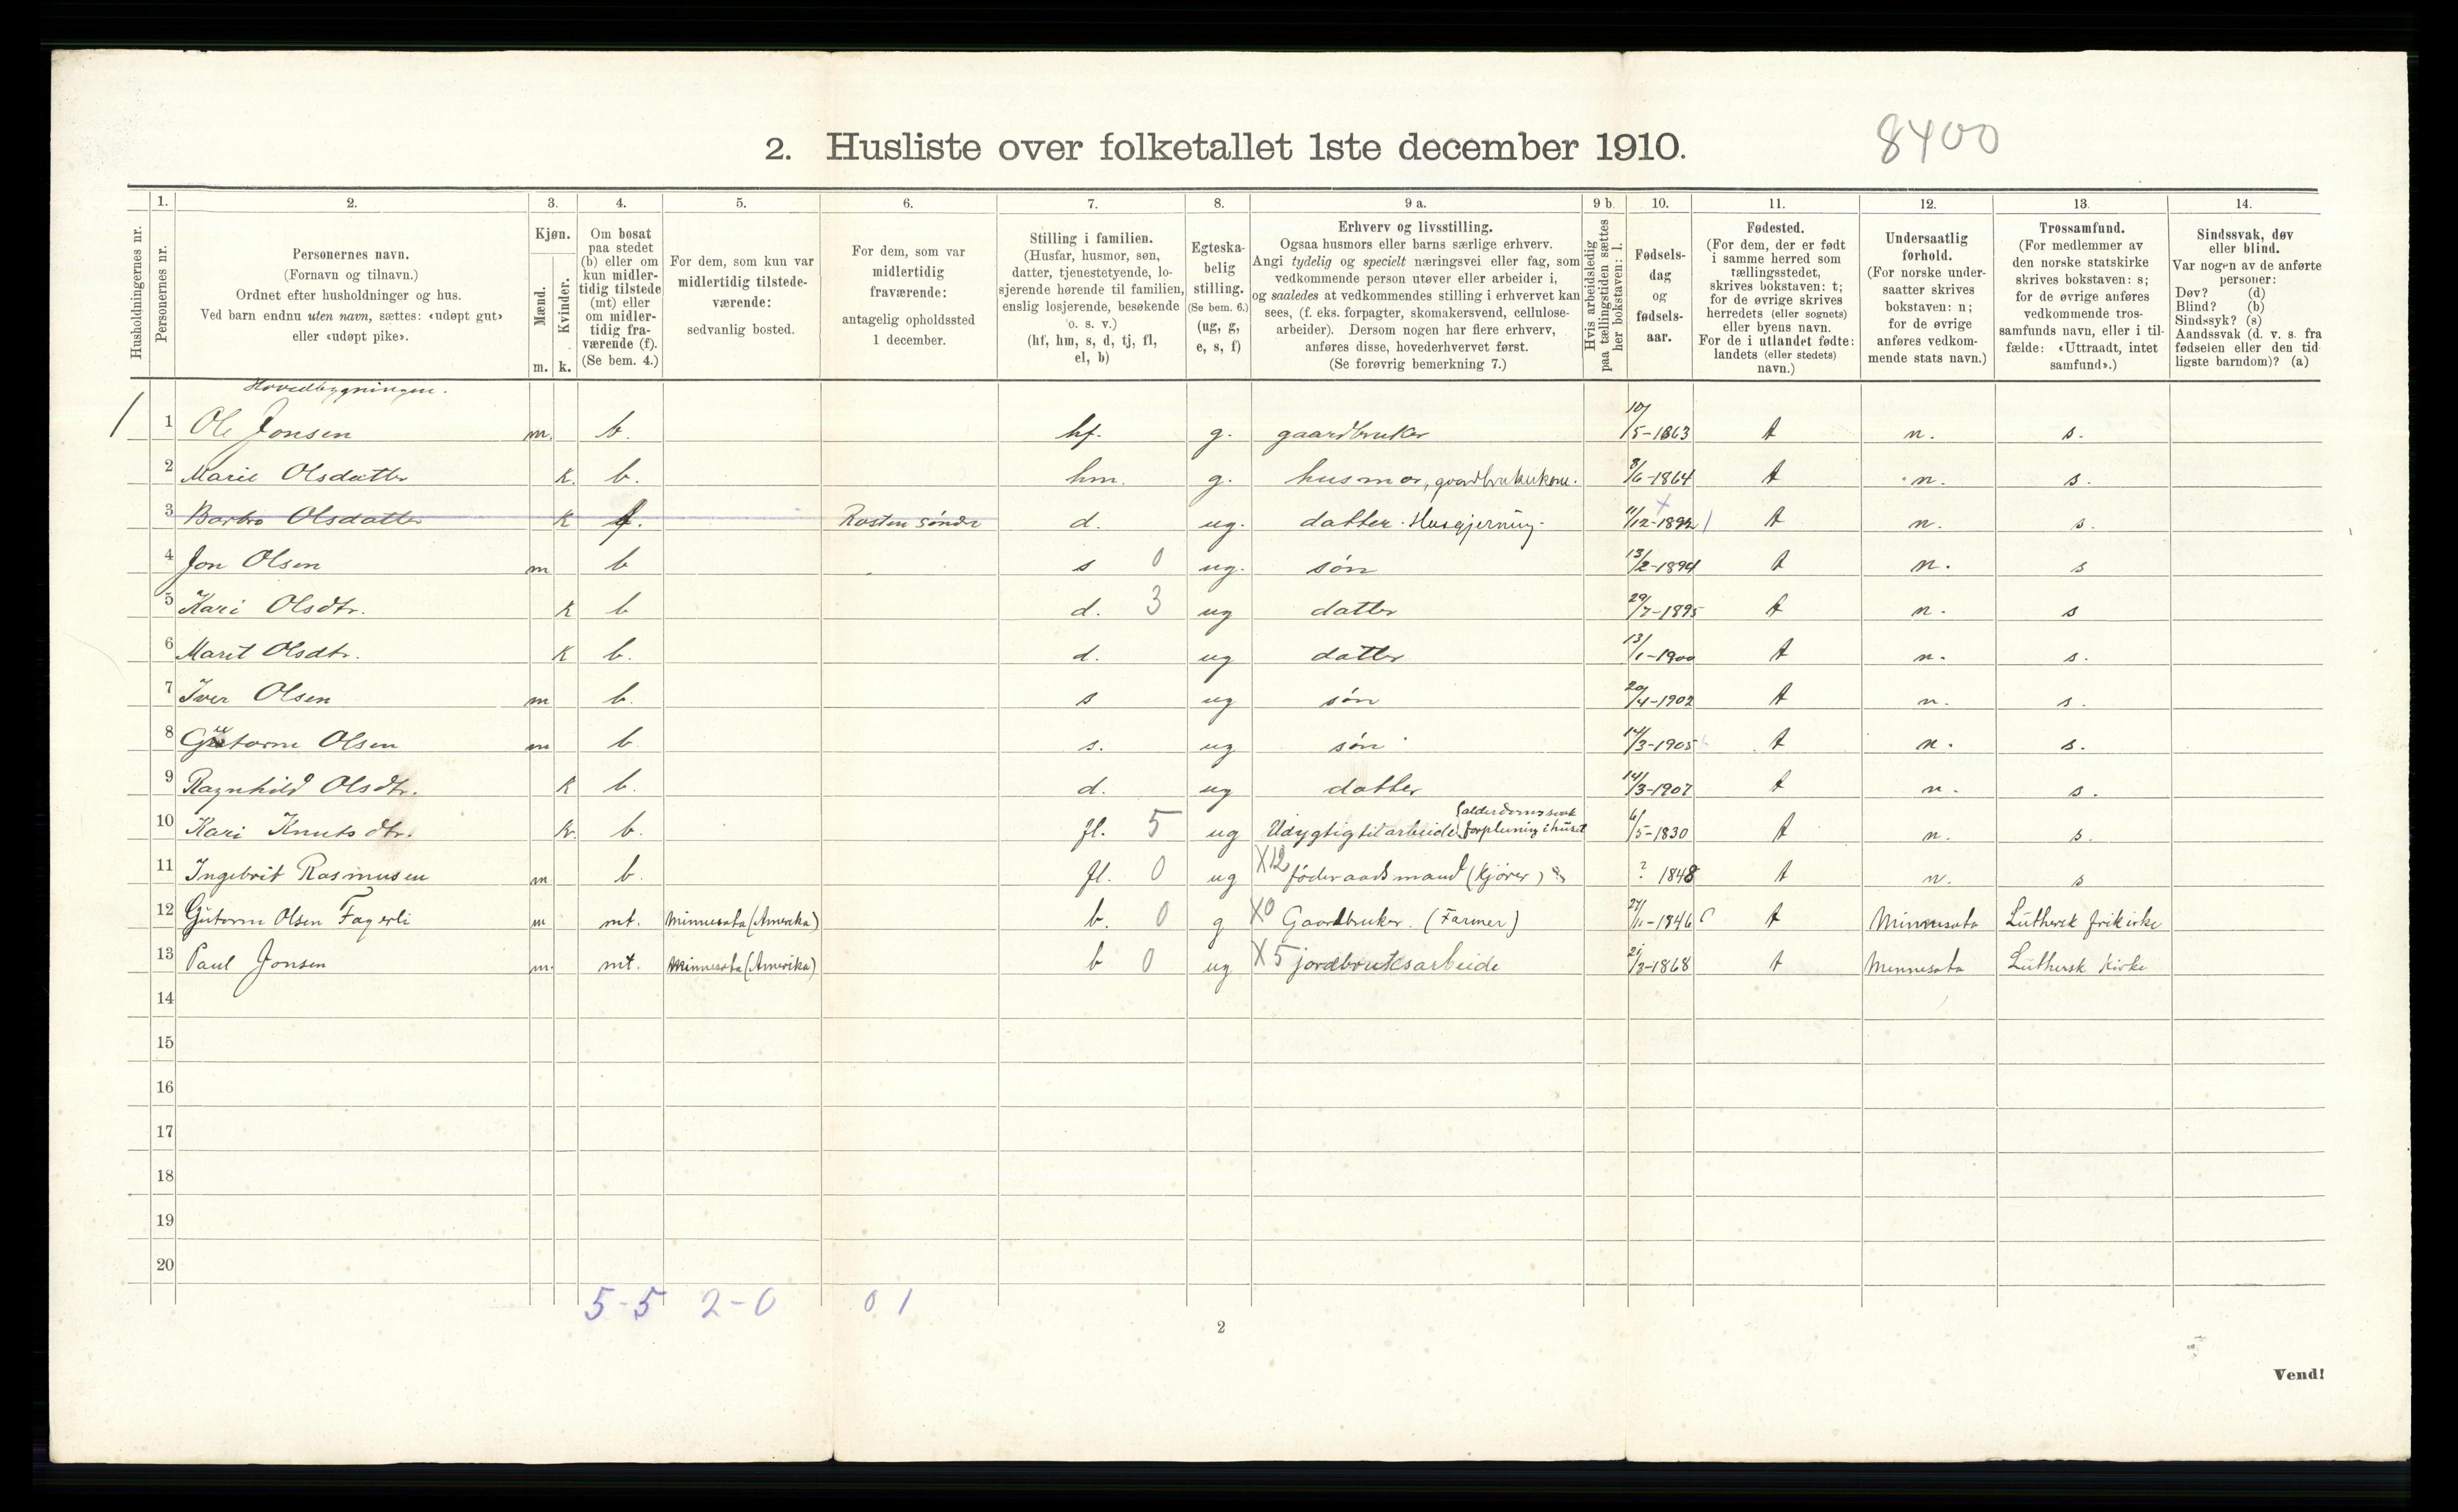 2. Husliste over folketallet 1ste december 1910.
8400
Husholdningernes nr.
1.
Personernes nr.
2.
Personernes navn.
(Fornavn og tilnavn.)
Ordnet efter husholdninger og hus.
Ved barn endnu uten navn, sættes: «udøpt gut»
eller «udøpt pike».
3.
Kjøn.
Mænd.
Kvinder.
m. k.
4.
Om bosat
paa stedet
(b) eller om
kun midler-
tidig tilstede
(mt) eller
om midler-
tidig fra-
værende (f).
(Se bem. 4.)
5.
For dem, som kun var
midlertidig tilstede-
værende:
sedvanlig bosted.
6.
For dem, som var
midlertidig
fraværende:
antagelig opholdssted
1 december.
7.
Stilling i familien.
(Husfar, husmor, søn,
datter, tjenestetyende, lo-
sjerende hørende til familien,
enslig losjerende, besøkende
o. s. v.)
(hf, hm, s, d, tj, fl,
el, b)
8.
Egteska-
belig
stilling.
(Se bem. 6.)
(ug, g,
e, s, f)
9 a.
Erhverv og livsstilling.
Ogsaa husmors eller barns særlige erhverv.
Angi tydelig og specielt næringsvei eller fag, som
vedkommende person utøver eller arbeider i,
og saaledes at vedkommendes stilling i erhvervet kan
sees, (f. eks. forpagter, skomakersvend, cellulose-
arbeider). Dersom nogen har flere erhverv,
anføres disse, hovederhvervet først.
(Se forøvrig bemerkning 7.)
9 b
Hvis arbeidsledig
paa tællingstiden sættes
her bokstaven: l.
10.
Fødsels-
dag
og
fødsels-
aar.
11.
Fødested.
(For dem, der er født
i samme herred som
tællingsstedet,
skrives bokstaven: t;
for de øvrige skrives
herredets (eller sognets)
eller byens navn.
For de i utlandet fødte:
landets (eller stedets)
navn.)
12.
Undersaatlig
forhold.
(For norske under-
saatter skrives
bokstaven: n;
for de øvrige
anføres vedkom-
mende stats navn.)
13.
Trossamfund.
(For medlemmer av
den norske statskirke
skrives bokstaven: s;
for de øvrige anføres
vedkommende tros-
samfunds navn, eller i til-
fælde: «Uttraadt, intet
samfund».)
14.
Sindssvak, døv
eller blind.
Var nogen av de anførte
personer:
Døv? (d)
Blind? (b)
Sindssyk? (s)
Aandssvak (d. v. s. fra
fødselen eller den tid-
ligste barndom)? (a)
Hovedbygningen.
1 1 Ole Jonsen m. b. hf. g. gaardbruker 10/5-1863 t n. s.
2 Marie Olsdatter k. b. hm. g. husmor, gaardbrukerkone. 8/6-1864 t n. s.
3 Barbro Olsdatter k f. Rosten søndr d. ug. datter. Husgjerning. 11/12-1892 t n. s.
4 Jon Olsen m b s 0 ug. søn 13/2-1894 t n. s
5 Kari Olsdtr. k b d. 3 ug datter 29/7-1895 t n. s
6 Marit Olsdtr. k b. d. ug datter 13/1-1900 t n. s.
7 Iver Olsen m b. s ug søn 20/4-1902 t n. s.
8 Gutorm Olsen m b. s. ug søn 14/3-1905 t n. s.
9 Ragnhild Olsdtr. k b. d. ug datter 14/3-1907 t n. s.
10 Kari Knutsdtr. k. b. fl. 5 ug Udygtig til arbeide alderdomssvak forpleining i huset 6/5-1830 t n. s.
11 Ingebrit Rasmusen m b. fl. 0 ug X12 føderaadsmand (kjører) ? 1848 t n. s
12 Gutorm Olsen Fagerli m mt. Minnesota (Amerika) b. 0 g X0 Gaardbruker. (Farmer) 27/11-1846 t Minnesota Luthersk frikirke
13 Paul Jonsen m. mt. Minnesota (Amerika) b 0 ug X5 jordbruksarbeide 21/3-1868 t Minnesota Luthersk Kirke
14
15
16
17
18
19
20
5-5 2-0 0 1
2
Vend!